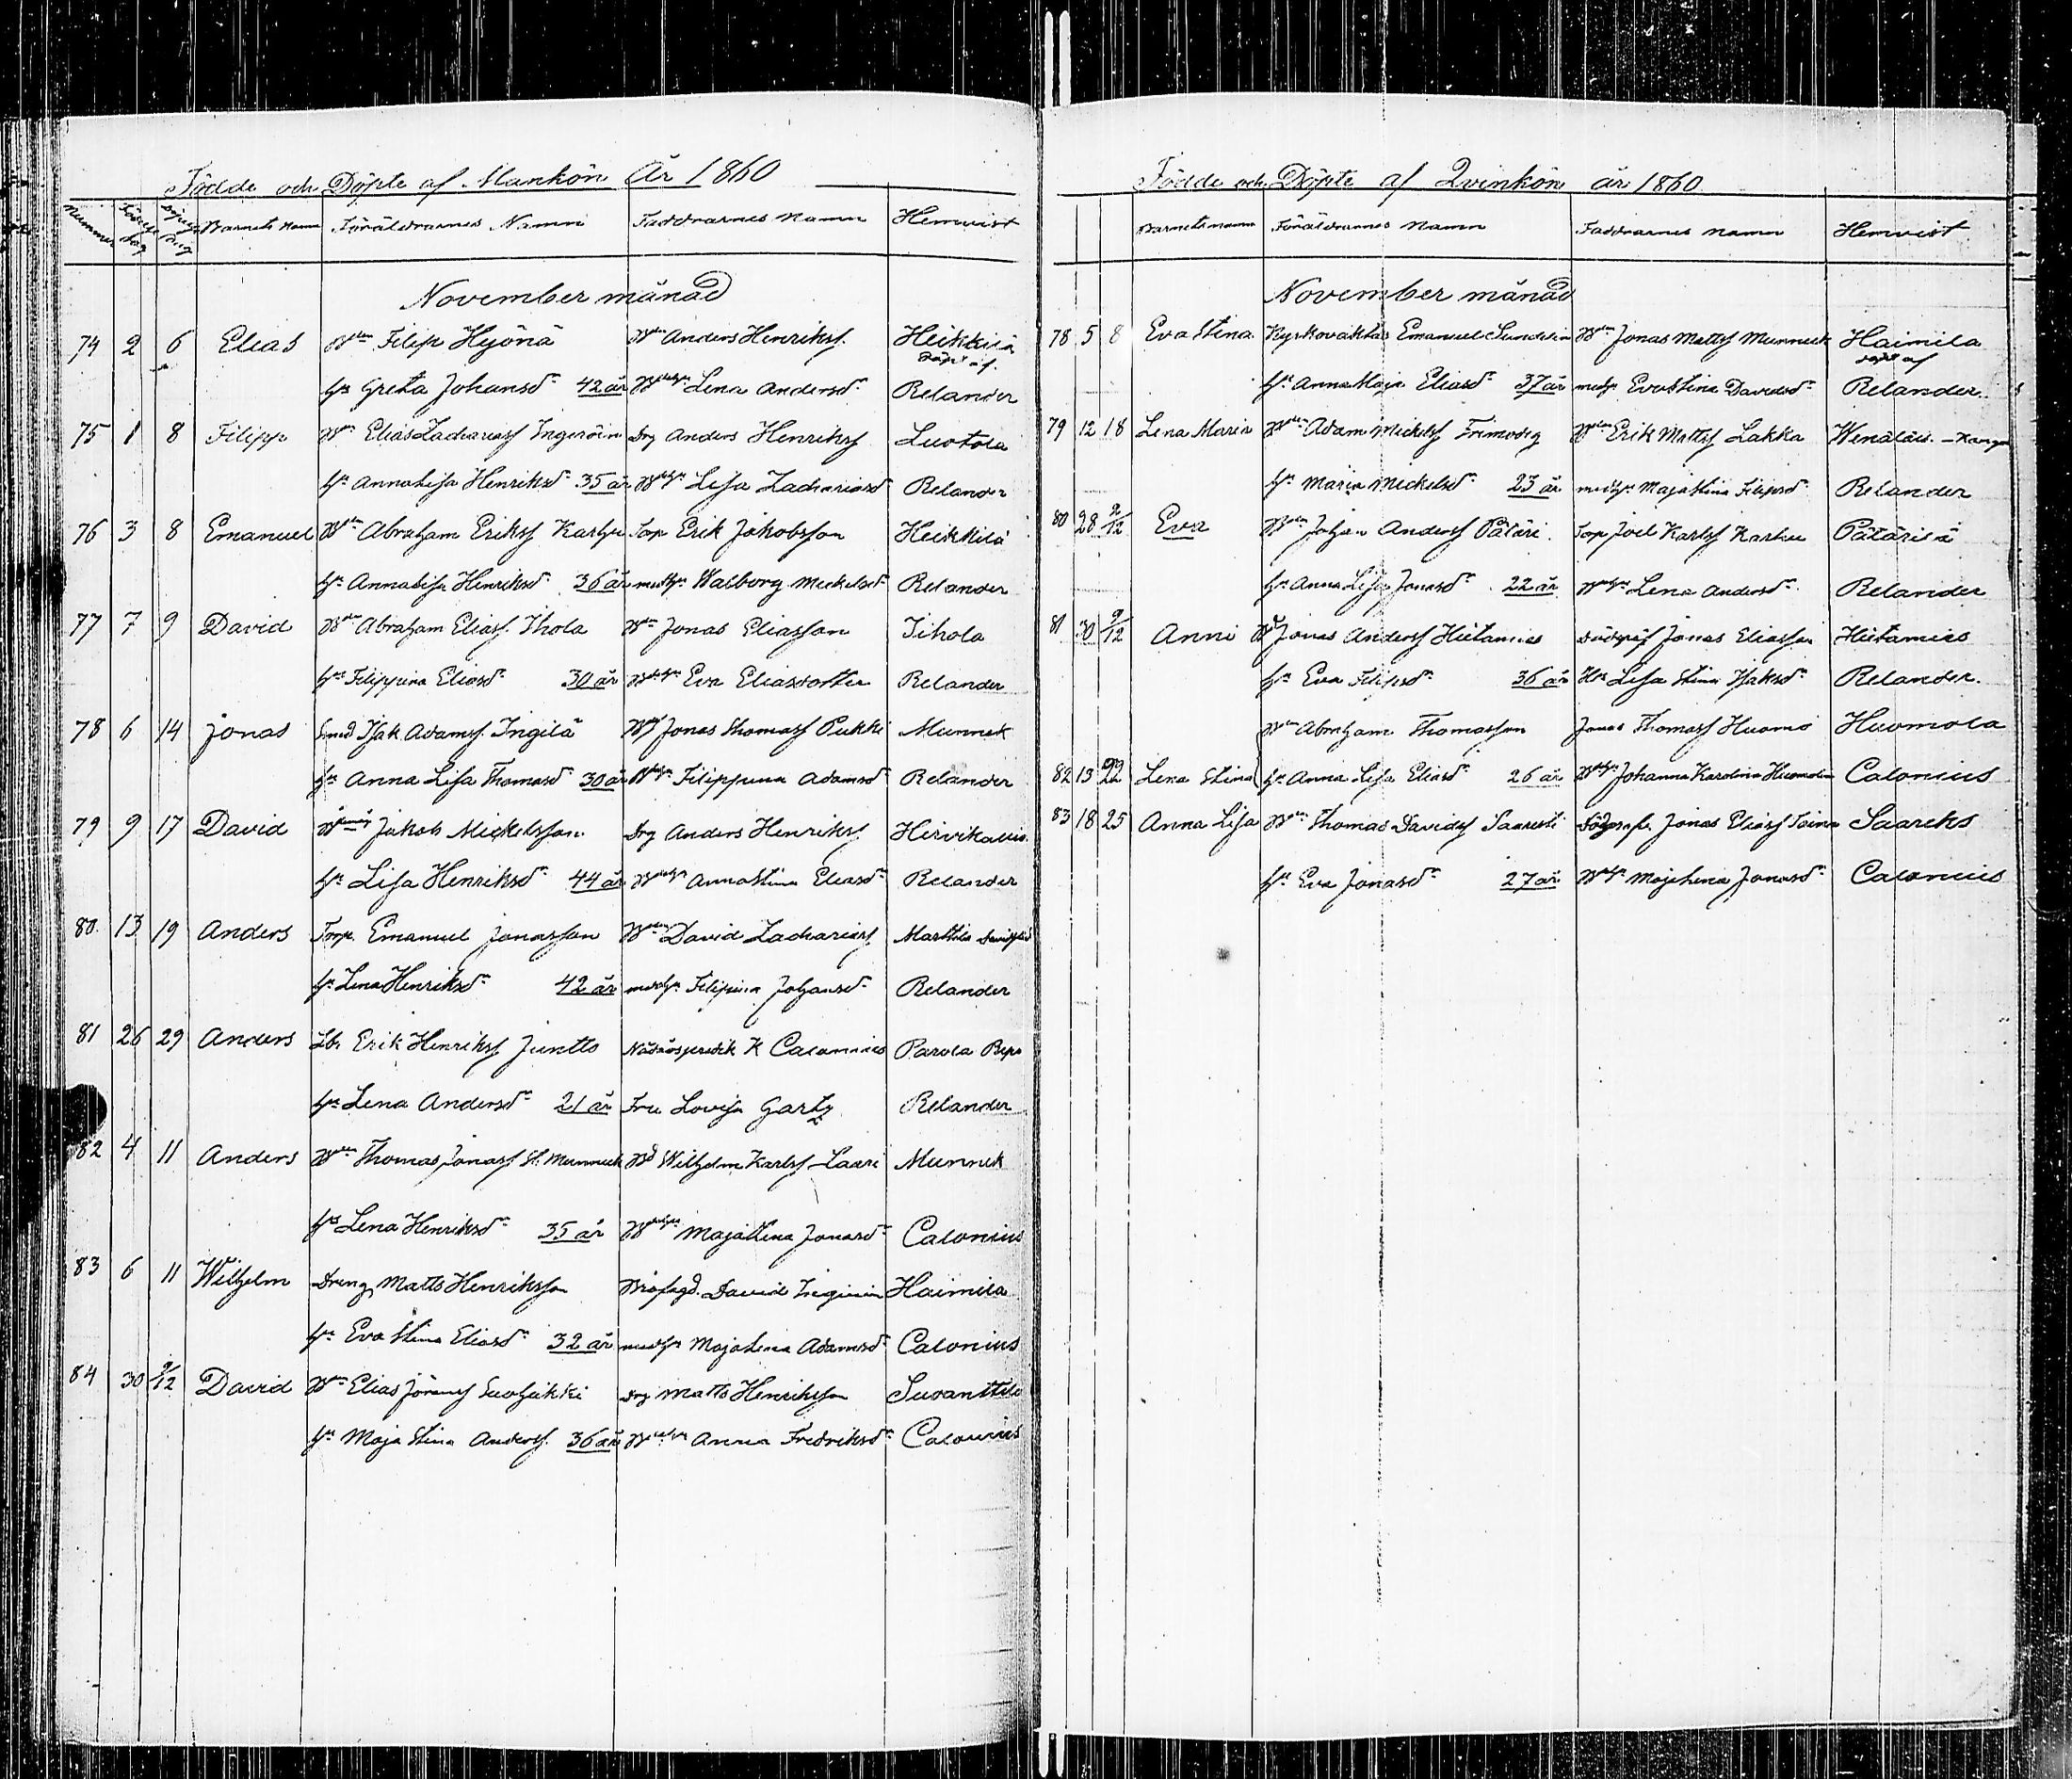 Födde och Döpte af Mankön År 1860
Nummer Födelse dag Döpelse dag Barnets Namn Föräldrarnes Namn Faddrarnes Namn Hemvist
November månad
74 2 6 Elias Bdn Filip Hyönä Bdn Anders Henrikss. Heikkilä
döpt af.
Hu Greta Johansdr 42 år Lena Andersdr Relander
75 1 8 Filipp Bdn Elias Zachariass Ingeröin Drg Anders Henrikss Luotola
Hu Annalisa Henriksdr 35 år Lisa Zachariasdr Relander
76 3 8 Emanuel Bdn Abraham Erikss Karhu Torp Erik Jakobsson Heikkilä
Hu Annalisa Henriksdr 36 år Walborg Mickelsdr Relander
77 7 9 David Bdn Abraham Eliass. Ihola Bdn Jonas Eliasson Tihola
Hu Filippina Eliasdr 30 år Eva Eliasdotter Relander
78 6 14 Jonas Smed Isak Adamss. Ingilä Jonas Thomass Pukki Munnek
Hu Anna Lisa Thomasdr 30 år Filippina Adamsdr Relander
79 9 17 David Jakob Mickelsson Drg Anders Henrikss. Hirvikallio
Hu Lisa Henriksdr 44 år Annastina Eliasdr Relander
80 13 19 Anders Torp. Emanuel Jonasson Bdn David Zachariass. Marttila
Hu Lena Henriksdr 42 år Filipina Johansdr Relander
81 26 29 Anders Erik Henrikss Juntto Nådårspredik K Calonnius Parola
Hu Lena Andersdr 21 år Fru Lovisa Gartz Relander
82 4 11 Anders Bdn Thomas Jonass St. Munnuk Wilhelm Karlss Laari Munnek
Hu Lena Henriksdr 35 år Majastina Jonasdr Calonius
83 6 11 Wilhelm Dreng Matts Henriksson David Haimila
Hu Eva Stina Eliasdr 32 år Majastina Adamsdr Calonius
84 30 9/12 David Bdn Elias Jöranss Drg Matts Henriksson Suvanttila
Hu Maja Stina Anderss. 36 år Anna Fredriksdr Calonius
Födde och Döpte af Qvinkön år 1860
Barnets namn Föräldrarnes Namn Faddrarnes namn Hemvist
November månad
78 5 8 Eva Stina Kyrkovaktar Emanuel Sundelin Bdn Jonas Matts Munnuk Haimila
döpt af
Hu Anna Maja Eliasdr 37 år Evastina Davidsdr Relander.
79 12 18 Lena Maria Bdn Adam Mickelss Frimodig Bdn Erik Mattss Lakka Wenäläis. - Kangas
Hu Maria Mickelsdr 23 år Majastina Filipsdr Relander
80 28 9/12 Eva Bdn Johan Anderss Pätäri. Torp Joel Karlss Karhu Pätärilä
Hu Anna Lisa Jonasdr 22 år Lena Andersdr. Relander
81 30 9/12 Anni Jonas Anderss Hietamies Jonas Eliasson Hietamies
Hu Eva Filipsdr 36 år Lisa Stina Isaksdr Relander.
Bdn Abraham Thomasson Jonas Thomass Huomo Huomola
82 13 22 Lena Stina Hu Anna Lisa Eliasdr 26 år Johanna Karolina Calonius
83 18 25 Anna Lisa Bdn Thomas Davidss Jonas Eliass Saareks
Hu Eva Jonasdr 27 år Majastina Jonasdr Calonius